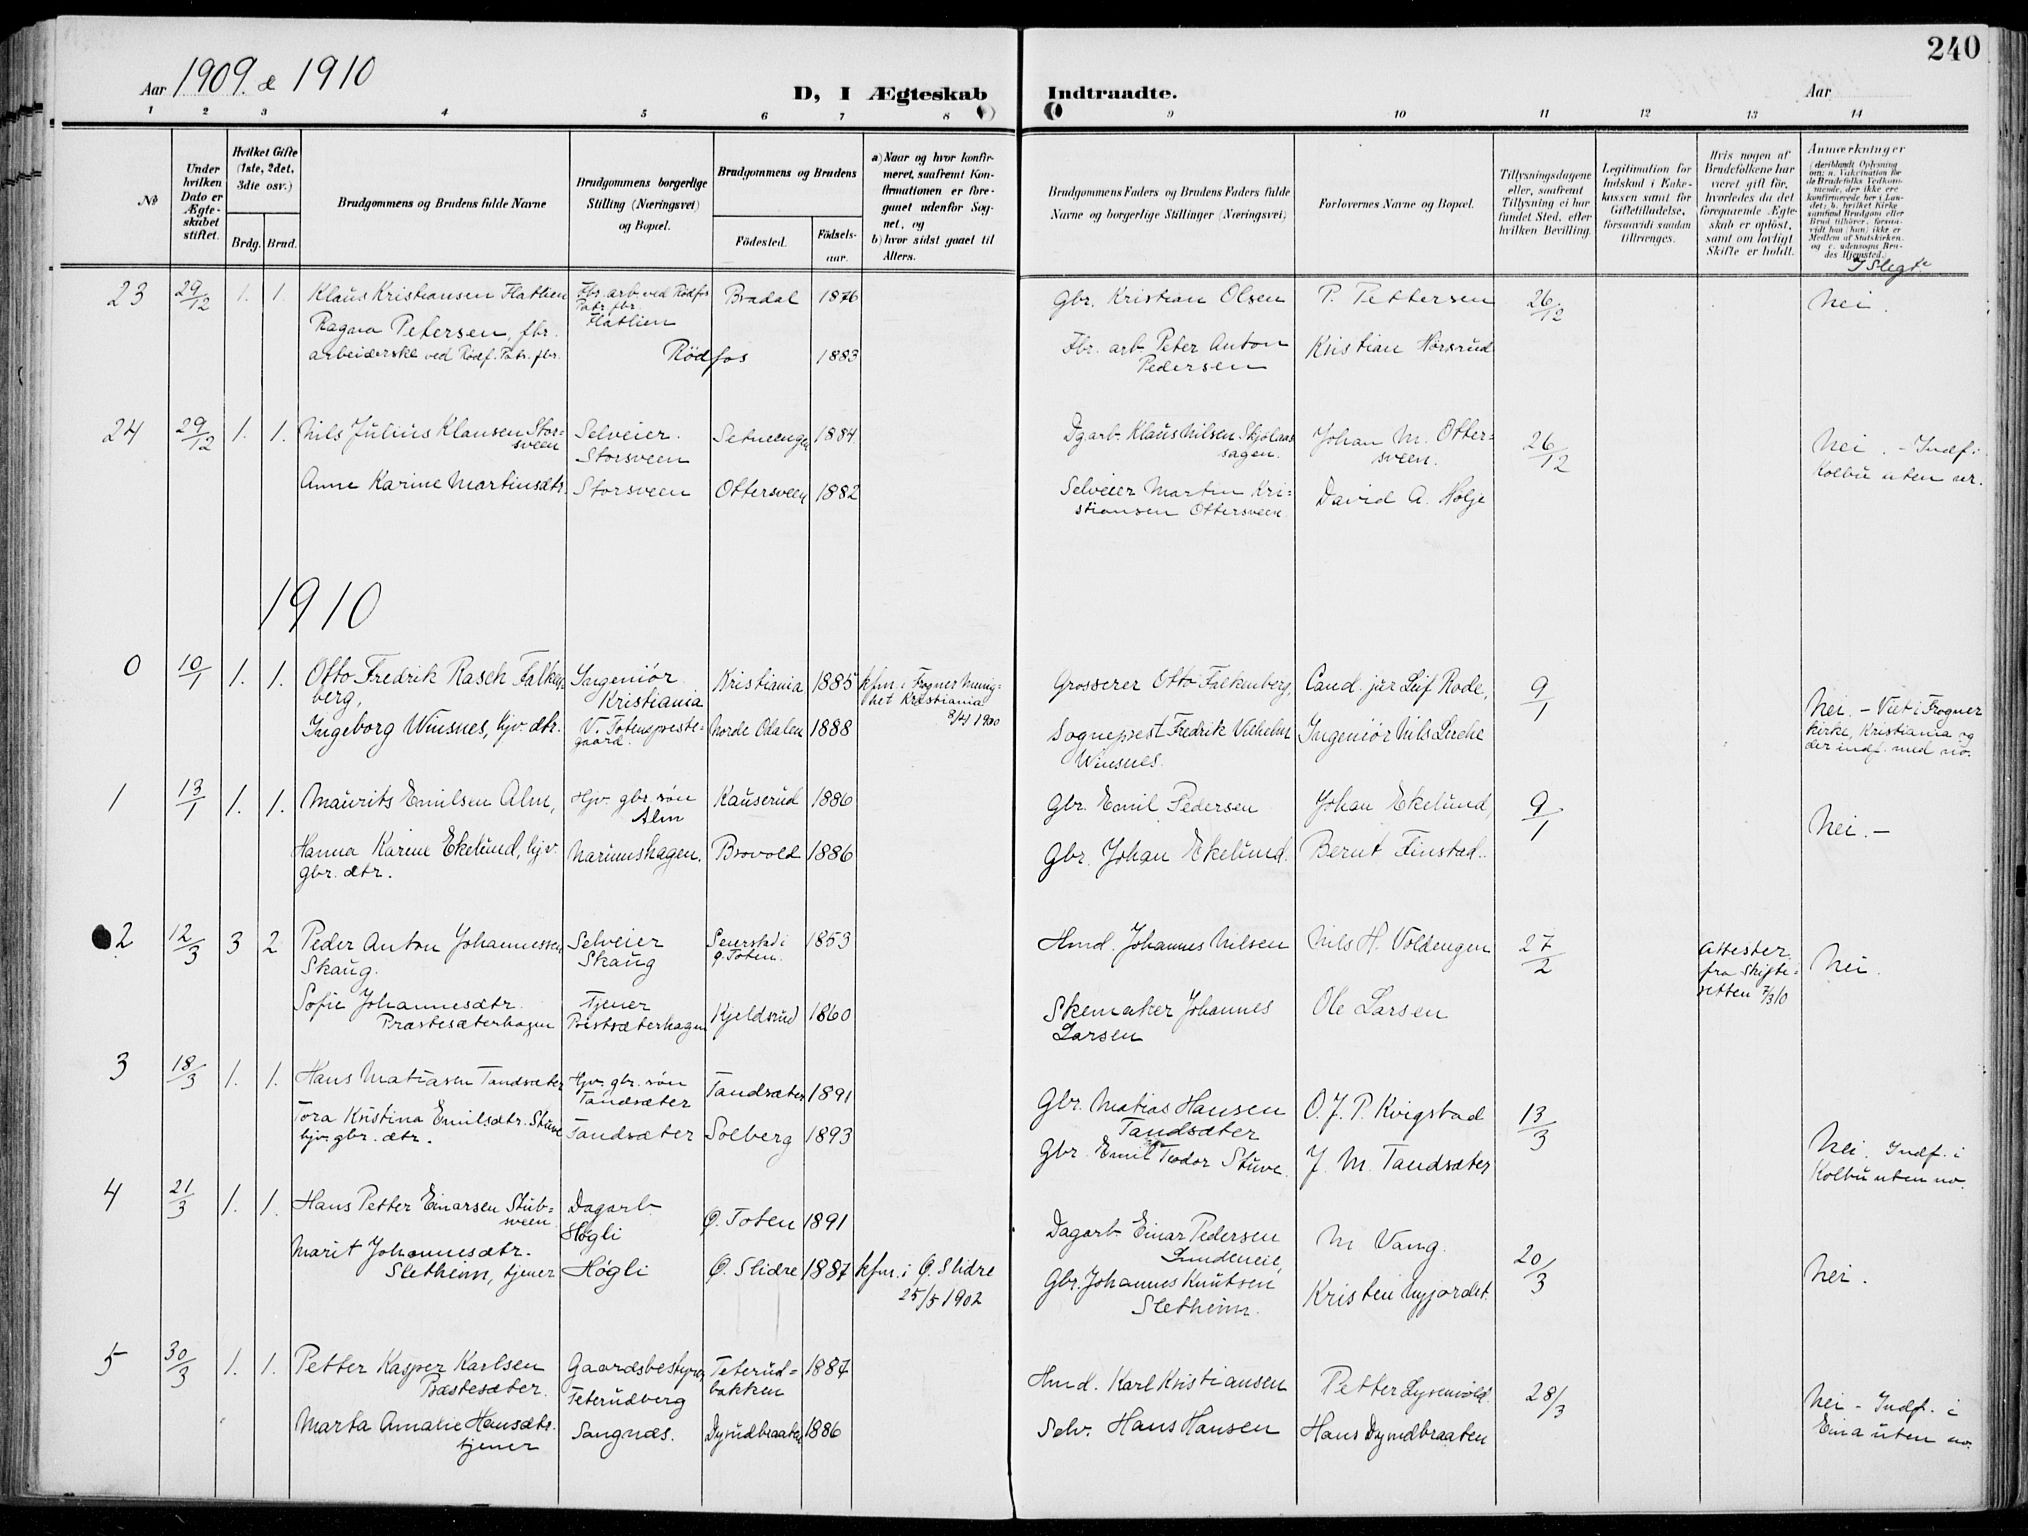 240
Aar 1909. & 1910
D, I Ægteskab Indtraadte.
Aar
1 2 3 4 5 6 7 8 9 10 11 12 13 14
No
Under hvilken Dato er Ægteskabet stiftet.
Hvilket Gifte (1ste, 2det, 3dte osv.)
Brdg. Brud.
Brudgommens og Brudens fulde Navne
Brudgommens borgerlige Stilling (Næringsvei) og Bopæl.
Brudgommens og Brudens
Fødested.
Fødselsaar.
a) Naar og hvor konfirmeret, saafremt Konfirmationen er foregaaet udenfor Sognet, og
b) hvor sidst gaaet til Alters.
Brudgommens Faders og Brudens Faders fulde Navne og borgerlige Stillinger (Næringsvei)
Forlovernes Navne og Bopæl.
Tillysningsdagene eller, saafremt Tillysning ei har fundet Sted, efter hvilken Bevilling.
Legitimation for Indskud i Enkekassen samt for Giftetilladelse, forsaavidt saadan tiltrænges.
Hvis nogen af Brudefolkene har været gift før, hvorledes da det foregaaende Ægteskab er opløst, samt om lovligt Skifte er holdt.
Anmærkninger
(deriblandt Oplysning om: a. Vakcination for de Brudefolks Vedkommende, der ikke ere konfirmerede her i Landet; b. hvilket Kirkesamfund Brudgom eller Brud tilhører, forsaavidt han (hun) ikke er Medlem af Statskirken, og c. udensogns Brudes Hjemsted.)
I Slegt
23 29/12 1. 1. Klaus Kristiansen Flatlien Fbr. arb. ved Rødfos Patr. fbr. Flatlien Bradal 1876 Gbr. Kristian Olsen P. Pettersen 26/12 Nei.
Ragna Petersen, fbr. arbeiderske ved Rödf. Patr. fbr. Rödfos 1883 Fbr. arb. Peter Anton Pedersen Kristian Horsrud
24 29/12 1. 1. Nils Julius Klausen Storsveen Selveier. Storsveen Setneengen 1884 Dgarb. Klaus Nilsen Johan M. Ottersveen. 26/12 Nei. - Indf. i Kolbu uten nr.
Anne Karine Martinsdtr. Storsveen Ottersveen 1882 Selveier Martin Kristiansen Ottersveen David A. Holje
1910
0 10/1 1. 1. Otto Fredrik Rasch Falkenberg, Ingeniör Kristiania Kristiania 1885 kfm. i Frogner Menighet Kristiania 8/4 1900 Grosserer Otto Falkenberg, Cand. jur Leif Rode, 9/1 Nei. - Viet i Frogner kirke, Kristiania og der indf. med no.
Ingeborg Winsnes, hjv. dtr. V. Totens prestegaard. Nordre Odalen 1888 Sogneprest Fredrik Vilhelm Winsnes. Ingeniör Nils Lerche
1 13/1 1. 1. Maurits Emilsen Alm, Hjv. gbr. søn Alm Kauserud 1886 Gbr. Emil Pedersen Johan Ekelund, 9/1 Nei. -
Hanna Karine Ekelund, hjv. gbr. dtr. Narumshagen. Brovold 1886 Gbr. Johan Ekelund. Bernt Finstad.
2 12/3 3 2 Peder Anton Johannessen Skaug. Selveier Skaug Seierstad i Ø. Toten. 1853 Hmd. Johannes Nilsen Nils H. Voldengen 27/2 Attester fra Skifteretten 7/3 10 Nei.
Sofie Johannesdtr. Præstesæterhagen Tjener Prestsæterhagen Kjeldsrud 1860 Skomaker Johannes Larsen Ole Larsen
3 18/3 1. 1. Hans Matiasen Tandsæter Hjv. gbr. søn Tandsæter Tandsæter 1891 Gbr. Matias Hansen Tandsæter O. J. P. Kvigstad 13/3 Nei. Indf. i Kolbu uten no.
Tora Kristina Emilsdtr. Stuve hjv. gbr. dtr. Tandsæter Solberg 1893 Gbr. Emil Teodor Stuve. J. M. Tandsæter
4 21/3 1. 1. Hans Petter Einarsen Stubsveen Dagarb. Høgli Ø. Toten 1891 Dagarb. Einar Pedersen Lundeneie, M. Vang. 20/3 Nei.
Marit Johannesdtr. Sletheim, tjener Høgli Ø. Slidre 1887 kfm. i Ø. Slidre 25/5 1902 Gbr. Johannes Knutsen Sletheim. Kristen Nyjordet.
5 30/3 1. 1. Petter Kasper Karlsen Præstesæter. Gaardsbestyrer Teterudberg Teterudbakken 1887 Hmd. Karl Kristiansen Petter 28/3 Nei - Indf. i Eina uten no.
Marta Amalie Hansdtr. tjener Sangnæs. Dyrudbraaten 1886 Selv. Hans Hansen Hans Dyrudbraaten